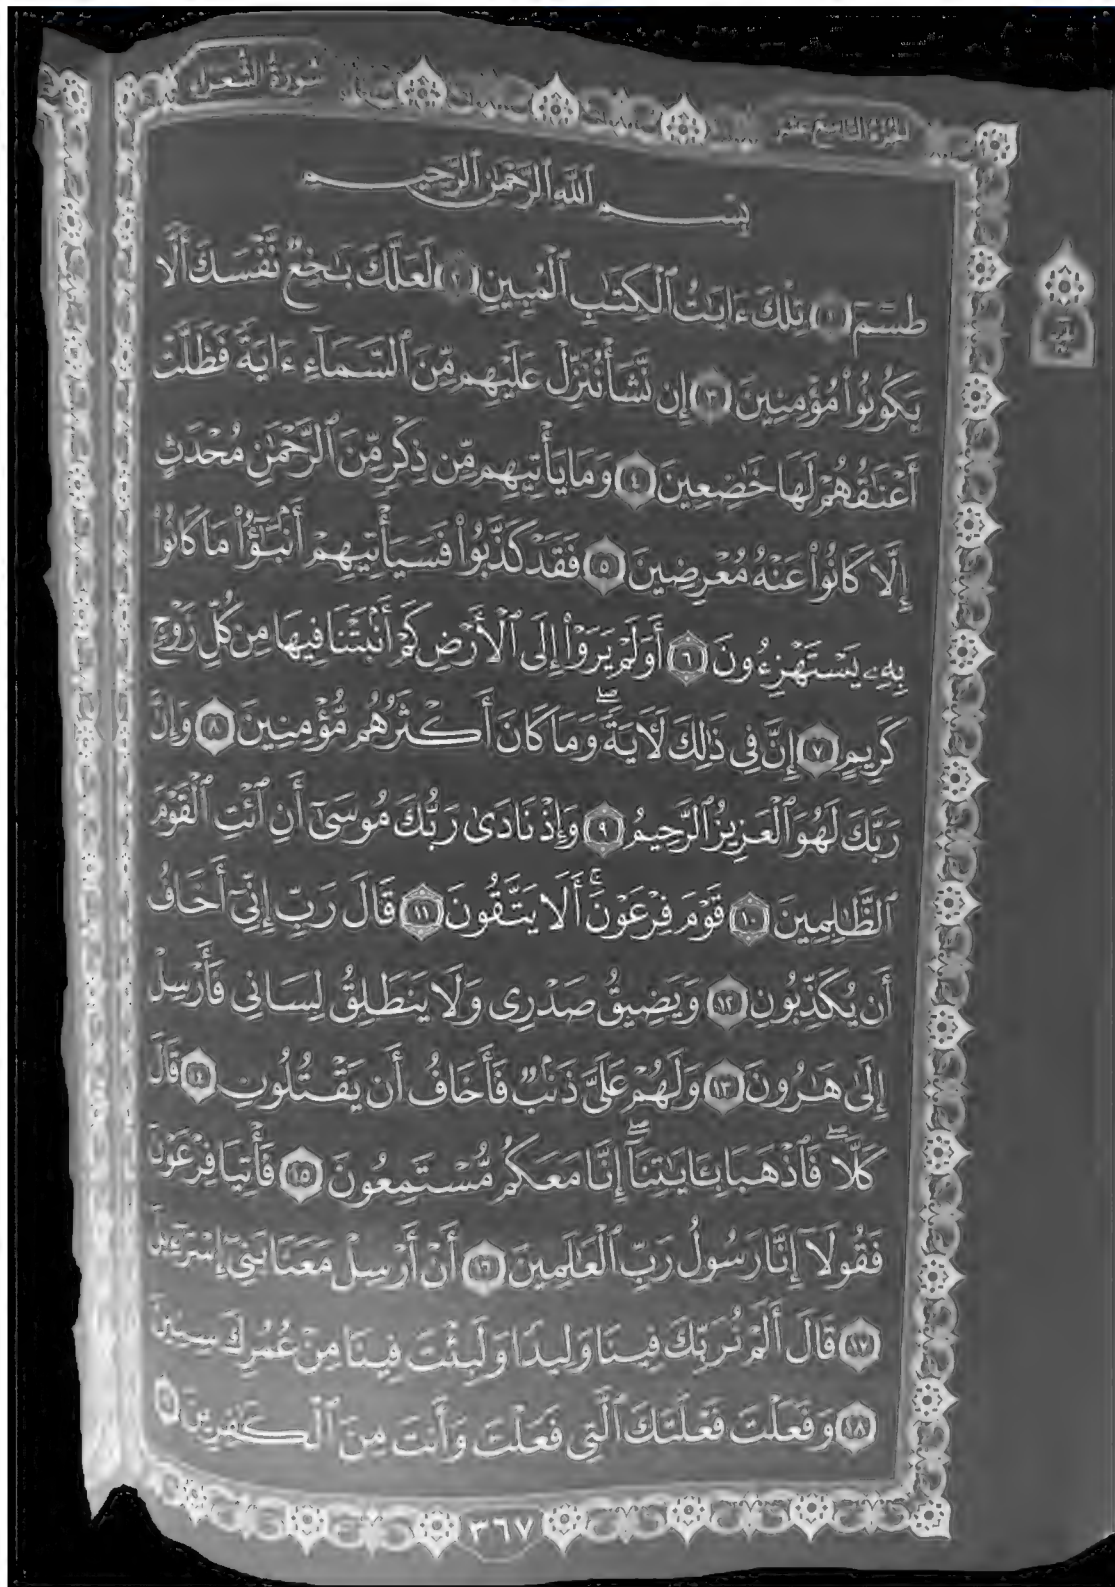 الجزء التاسع عشر
سورة الشعراء
بِسْمِ ٱللَّهِ ٱلرَّحْمَٰنِ ٱلرَّحِيمِ
طسٓمٓ ١ تِلْكَ ءَايَٰتُ ٱلْكِتَٰبِ ٱلْمُبِينِ ٢ لَعَلَّكَ بَٰخِعٌ نَّفْسَكَ أَلَّا
يَكُونُوا۟ مُؤْمِنِينَ ٣ إِن نَّشَأْ نُنَزِّلْ عَلَيْهِم مِّنَ ٱلسَّمَآءِ ءَايَةً فَظَلَّتْ
أَعْنَٰقُهُمْ لَهَا خَٰضِعِينَ ٤ وَمَا يَأْتِيهِم مِّن ذِكْرٍ مِّنَ ٱلرَّحْمَٰنِ مُحْدَثٍ
إِلَّا كَانُوا۟ عَنْهُ مُعْرِضِينَ ٥ فَقَدْ كَذَّبُوا۟ فَسَيَأْتِيهِمْ أَنۢبَٰٓؤُا۟ مَا كَانُوا۟
بِهِۦ يَسْتَهْزِءُونَ ٦ أَوَلَمْ يَرَوْا۟ إِلَى ٱلْأَرْضِ كَمْ أَنۢبَتْنَا فِيهَا مِن كُلِّ زَوْجٍ
كَرِيمٍ ٧ إِنَّ فِى ذَٰلِكَ لَءَايَةً ۖ وَمَا كَانَ أَكْثَرُهُم مُّؤْمِنِينَ ٨ وَإِنَّ
رَبَّكَ لَهُوَ ٱلْعَزِيزُ ٱلرَّحِيمُ ٩ وَإِذْ نَادَىٰ رَبُّكَ مُوسَىٰٓ أَنِ ٱئْتِ ٱلْقَوْمَ
ٱلظَّٰلِمِينَ ١٠ قَوْمَ فِرْعَوْنَ ۚ أَلَا يَتَّقُونَ ١١ قَالَ رَبِّ إِنِّىٓ أَخَافُ
أَن يُكَذِّبُونِ ١٢ وَيَضِيقُ صَدْرِى وَلَا يَنطَلِقُ لِسَانِى فَأَرْسِلْ
إِلَىٰ هَٰرُونَ ١٣ وَلَهُمْ عَلَىَّ ذَنۢبٌ فَأَخَافُ أَن يَقْتُلُونِ ١٤ قَالَ
كَلَّا ۖ فَٱذْهَبَا بِـَٔايَٰتِنَآ ۖ إِنَّا مَعَكُم مُّسْتَمِعُونَ ١٥ فَأْتِيَا فِرْعَوْنَ
فَقُولَآ إِنَّا رَسُولُ رَبِّ ٱلْعَٰلَمِينَ ١٦ أَنْ أَرْسِلْ مَعَنَا بَنِىٓ إِسْرَٰٓءِيلَ
١٧ قَالَ أَلَمْ نُرَبِّكَ فِينَا وَلِيدًا وَلَبِثْتَ فِينَا مِنْ عُمُرِكَ سِنِينَ
١٨ وَفَعَلْتَ فَعْلَتَكَ ٱلَّتِى فَعَلْتَ وَأَنتَ مِنَ ٱلْكَٰفِرِينَ ١٩
٣٦٧